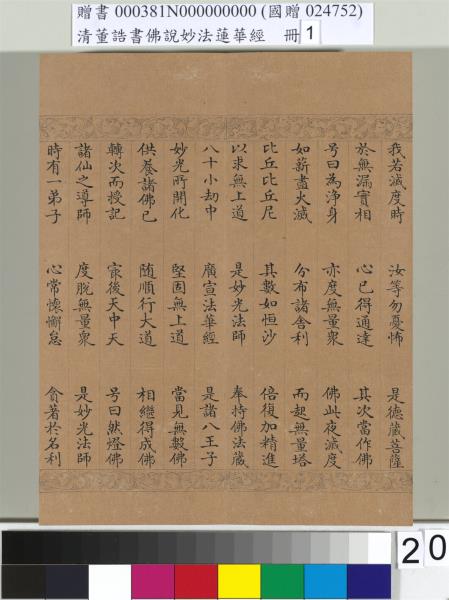 贈書 000381N000000000 (國贈 024752)
清董誥書佛說妙法蓮華經 冊1
我若滅度時 汝等勿憂怖 是德藏菩薩
於無漏實相 心已得通達 其次當作佛
号曰為淨身 亦度無量衆 佛此夜滅度
如薪盡火滅 分布諸舍利 而起無量塔
比丘比丘尼 其數如恒沙 倍復加精進
以求無上道 是妙光法師 奉持佛法藏
八十小劫中 廣宣法華經 是諸八王子
妙光所開化 堅固無上道 當見無數佛
供養諸佛已 随順行大道 相繼得成佛
轉次而授記 㝡後天中天 号曰然燈佛
諸仙之導師 度脫無量衆 是妙光法師
時有一弟子 心常懷懈怠 貪著於名利
20